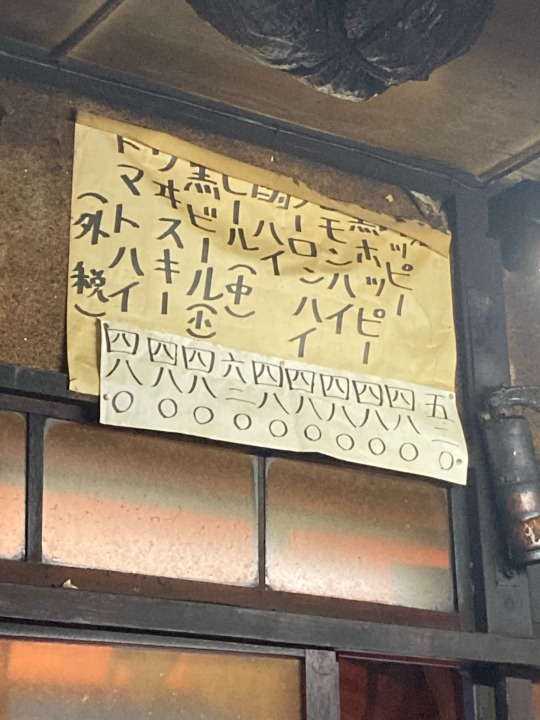 ッピー
黒ホッピー
モンハイ
ーロンハイ
酎ハイ
ビール（中）
黒ビール（小）
ウヰスキー
トマトハイ
（外税）
五二〇
四八〇
四八〇
四八〇
四八〇
四八〇
六二〇
四八〇
四八〇
四八〇